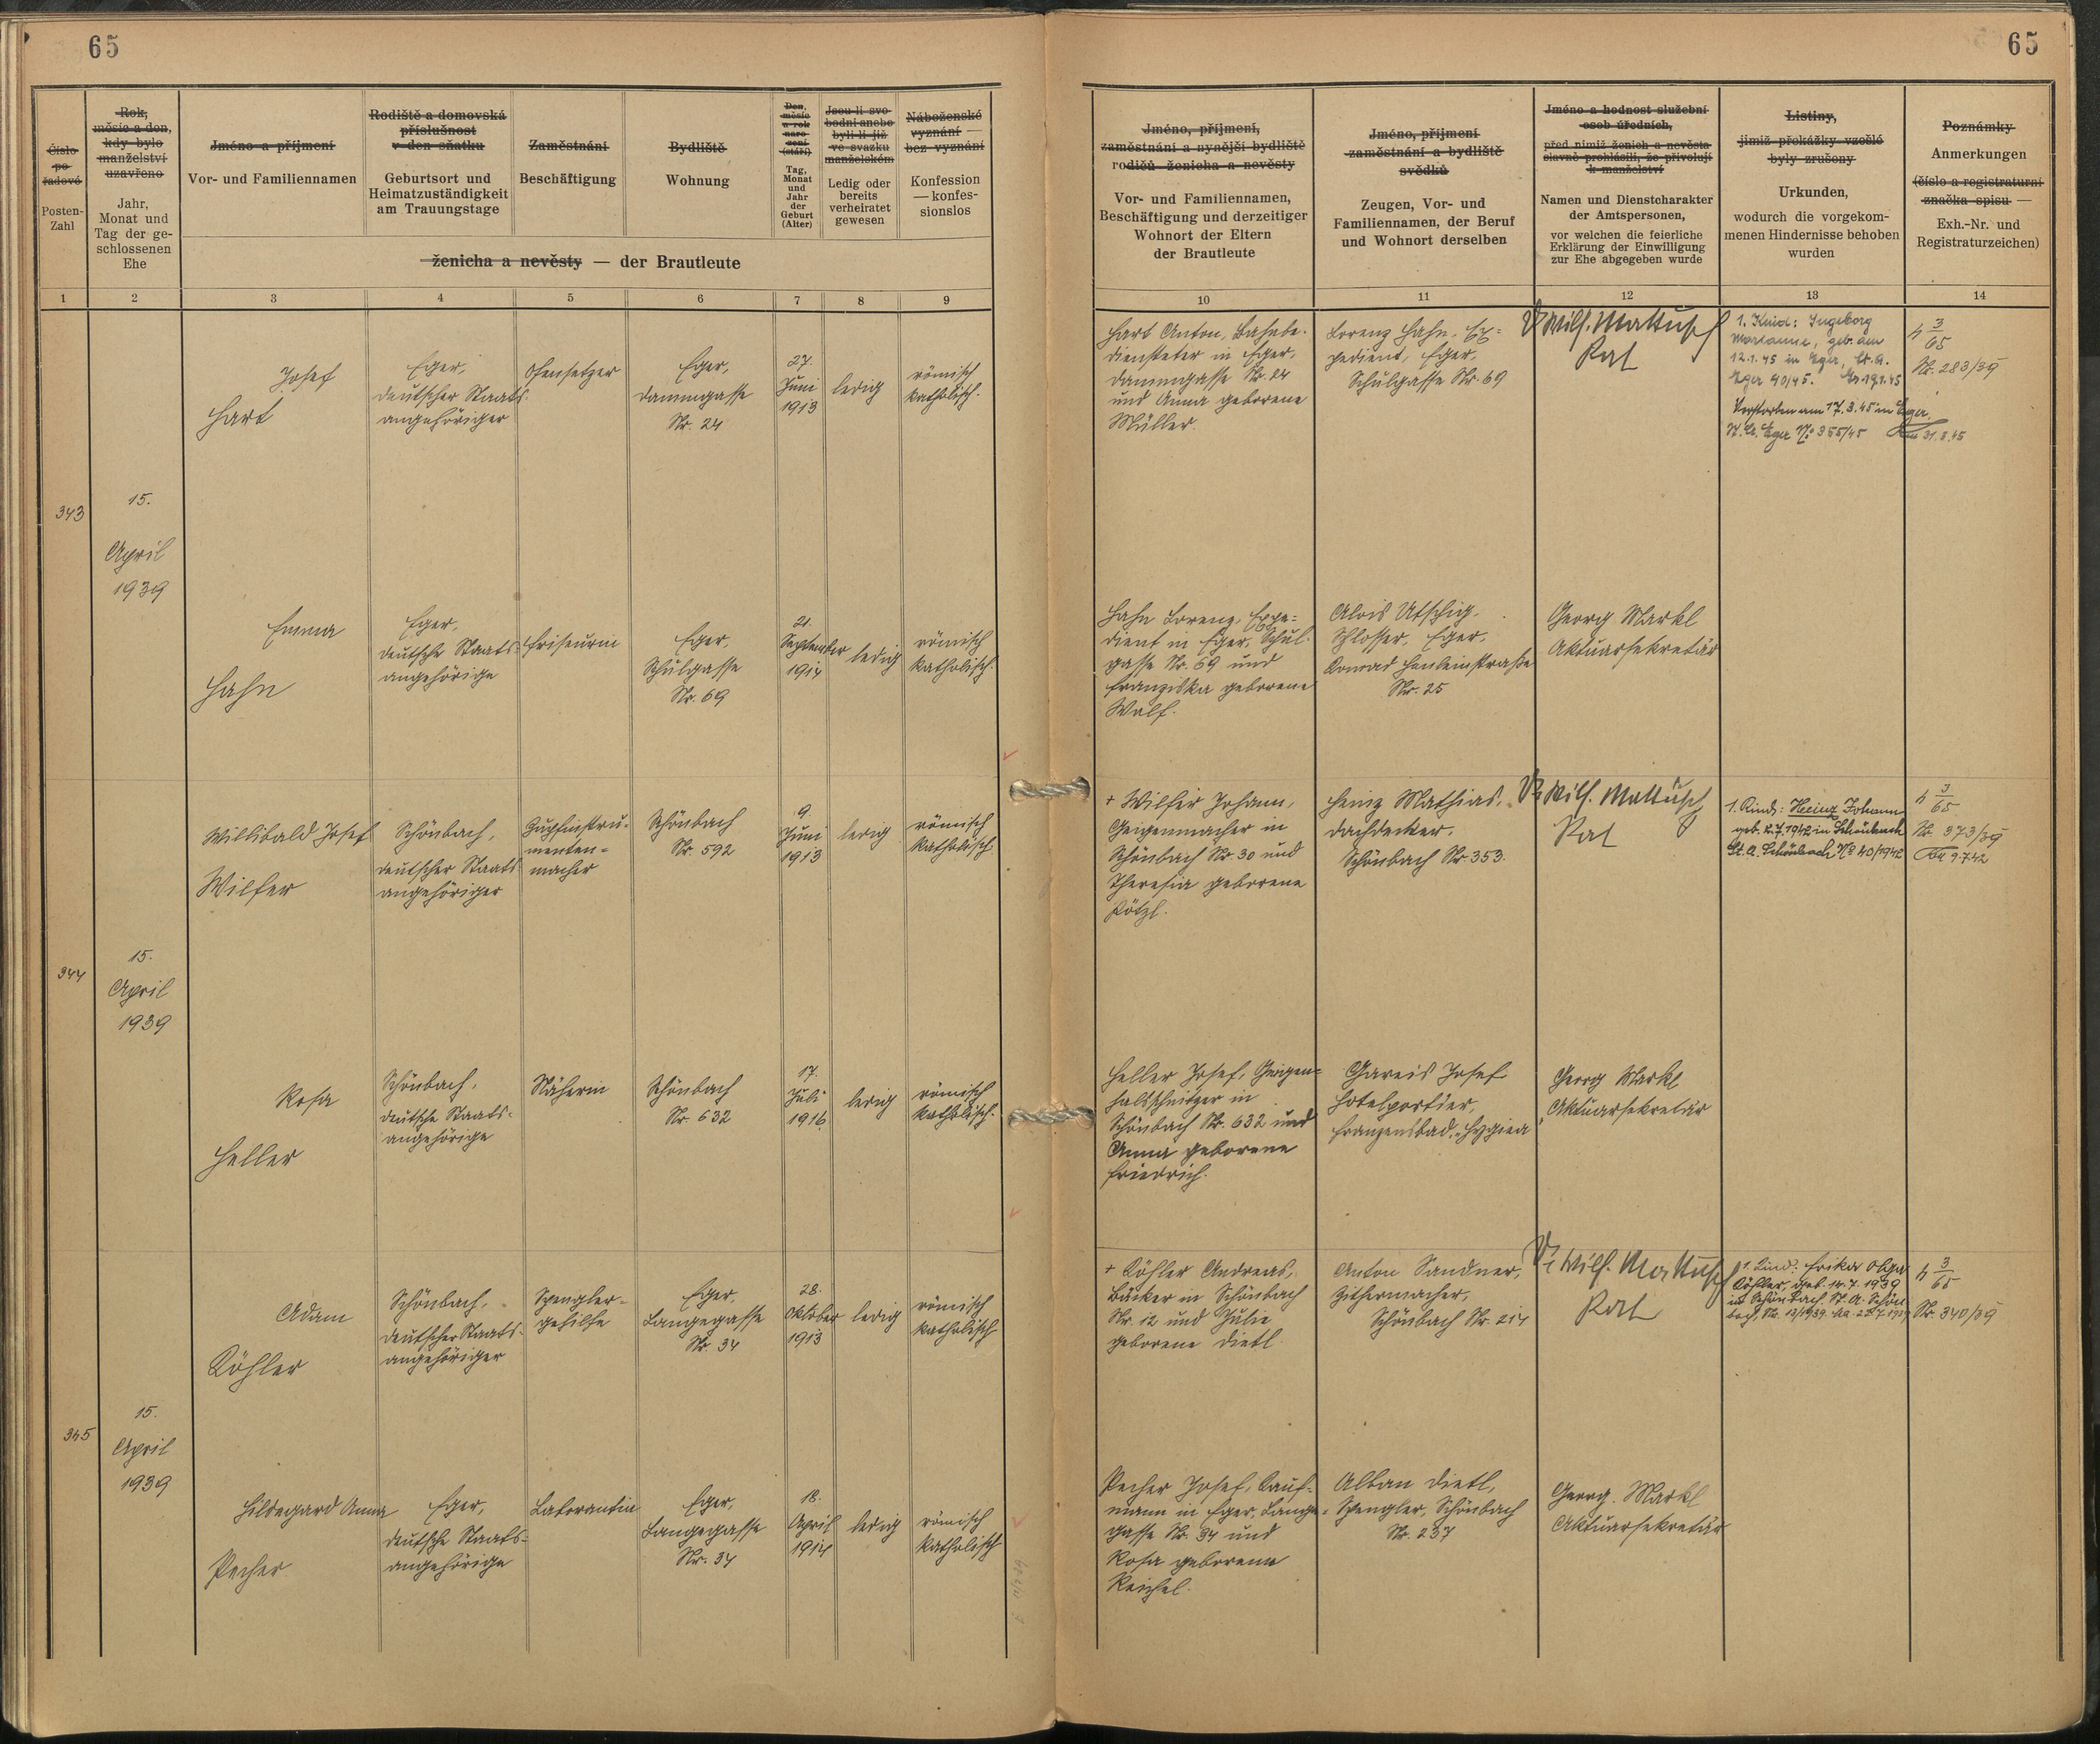 65
65
Číslo
po
řadové
Posten-
Zahl
Rok,
měsíc a den,
kdy bylo
manželství
uzavřeno
Jahr,
Monat und
Tag der ge-
schlossenen
Ehe
Jméno a příjmení
Vor- und Familiennamen
Rodiště a domovská
příslušnost
v den sňatku
Geburtsort und
Heimatzuständigkeit
am Trauungstage
Zaměstnání
Beschäftigung
Bydliště
Wohnung
Den,
měsíc
a rok
naro-
zení
(stáří)
Tag,
Monat
und
Jahr
der
Geburt
(Alter)
Jsou-li svo-
bodni anebo
byli-li již
ve svazku
manželském
Ledig oder
bereits
verheiratet
gewesen
Náboženské
vyznání —
bez vyznání
Konfession
— konfes-
sionslos
ženicha a nevěsty — der Brautleute
Jméno, příjmení,
zaměstnání a nynější bydliště
rodičů ženicha a nevěsty
Vor- und Familiennamen,
Beschäftigung und derzeitiger
Wohnort der Eltern
der Brautleute
Jméno, příjmení
zaměstnání a bydliště
svědků
Zeugen, Vor- und
Familiennamen, der Beruf
und Wohnort derselben
Jméno a hodnost služební
osob úředních,
před nimiž ženich a nevěsta
slavně prohlásili, že přivolují
k manželství
Namen und Dienstcharakter
der Amtspersonen,
vor welchen die feierliche
Erklärung der Einwilligung
zur Ehe abgegeben wurde
Listiny,
jimiž překážky vzešlé
byly zrušeny
Urkunden,
wodurch die vorgekom-
menen Hindernisse behoben
wurden
Poznámky
Anmerkungen
(číslo a registraturní
značka spisu —
Exh.-Nr. und
Registraturzeichen)
1 2 3 4 5 6 7 8 9 10 11 12 13 14
343
15.
April
1939
Josef
Hart
Eger,
deutscher Staats-
angehöriger
Ofensetzer
Eger,
Dammgasse
Nr. 24
27.
Juni
1913
ledig
römisch
katholisch.
Hart Anton, Bahnbe-
diensteter in Eger,
Dammgasse Nr. 24
und Anna geborene
Müller.
Lorenz Hahn, Ex-
pedient, Eger,
Schulgasse Nr. 69
Wilh. Mattusch
Rat
1. Kind: Ingeborg
Marianne, geb. am
12.1.45 in Eger, St.A.
Eger 40/45.
Verstorben am 17.3.45 in Eger.
St.A. Eger No 355/45
31.3.45
h 3/65
Nr. 283/39
Emma
Hahn
Eger,
deutsche Staats-
angehörige
Friseurin
Eger,
Schulgasse
Nr. 69
21.
September
1914
ledig
römisch
katholisch.
Hahn Lorenz, Expe-
dient in Eger, Schul-
gasse Nr. 69 und
Franziska geborene
Wolf.
Alois Utschig,
Schlosser, Eger,
Konrad Henleinstraße
Nr. 25
Georg Markl
Aktuarsekretär
344
15.
April
1939
Willibald Josef
Wilfer
Schönbach,
deutscher Staats-
angehöriger
Zupfinstru-
menten-
macher
Schönbach
Nr. 592
9.
Juni
1913
ledig
römisch
katholisch
+ Wilfer Johann,
Geigenmacher in
Schönbach Nr. 30 und
Theresia geborene
Kötzl.
Heinz Mathias,
Dachdecker,
Schönbach Nr. 353.
Wilh. Mattusch
Rat
1. Kind: Heinz Johann
geb. 2.7.1942 in Schönbach
St.A. Schönbach No 40/1942
h 3/65
Nr. 373/39
9.7.42
Rosa
Heller
Schönbach,
deutsche Staats-
angehörige
Näherin
Schönbach
Nr. 632
17.
Juli
1916
ledig
römisch
katholisch.
Heller Josef, Geigen-
halsschnitzer in
Schönbach Nr. 632 und
Anna geborene
Friedrich.
Gareis Josef
Hotelportier,
Franzensbad, „Hygiea"
Georg Markl
Aktuarsekretär
345
15.
April
1939
Adam
Köhler
Schönbach,
deutscher Staats-
angehöriger
Spengler-
gehilfe
Eger,
Langegasse
Nr. 34
28.
Oktober
1913
ledig
römisch
katholisch
+ Köhler Andreas,
Bäcker in Schönbach
Nr. 12 und Julie
geborene Dietl
Anton Sandner,
Zithermacher,
Schönbach Nr. 214
Wilh. Mattusch
Rat
1. Kind: Erika Olga
Köhler, geb. 14.7.1939
in Schönbach, St.A. Schön-
bach, Nr. 13/1939
h 3/65
Nr. 340/39
Hildegard Anna
Pecher
Eger,
deutsche Staats-
angehörige
Laborantin
Eger,
Langegasse
Nr. 34
18.
April
1914
ledig
römisch
katholisch
Pecher Josef, Kauf-
mann in Eger, Lange-
gasse Nr. 34 und
Rosa geborene
Reichel.
Alban Dietl,
Spengler, Schönbach
Nr. 237
Georg Markl
Aktuarsekretär